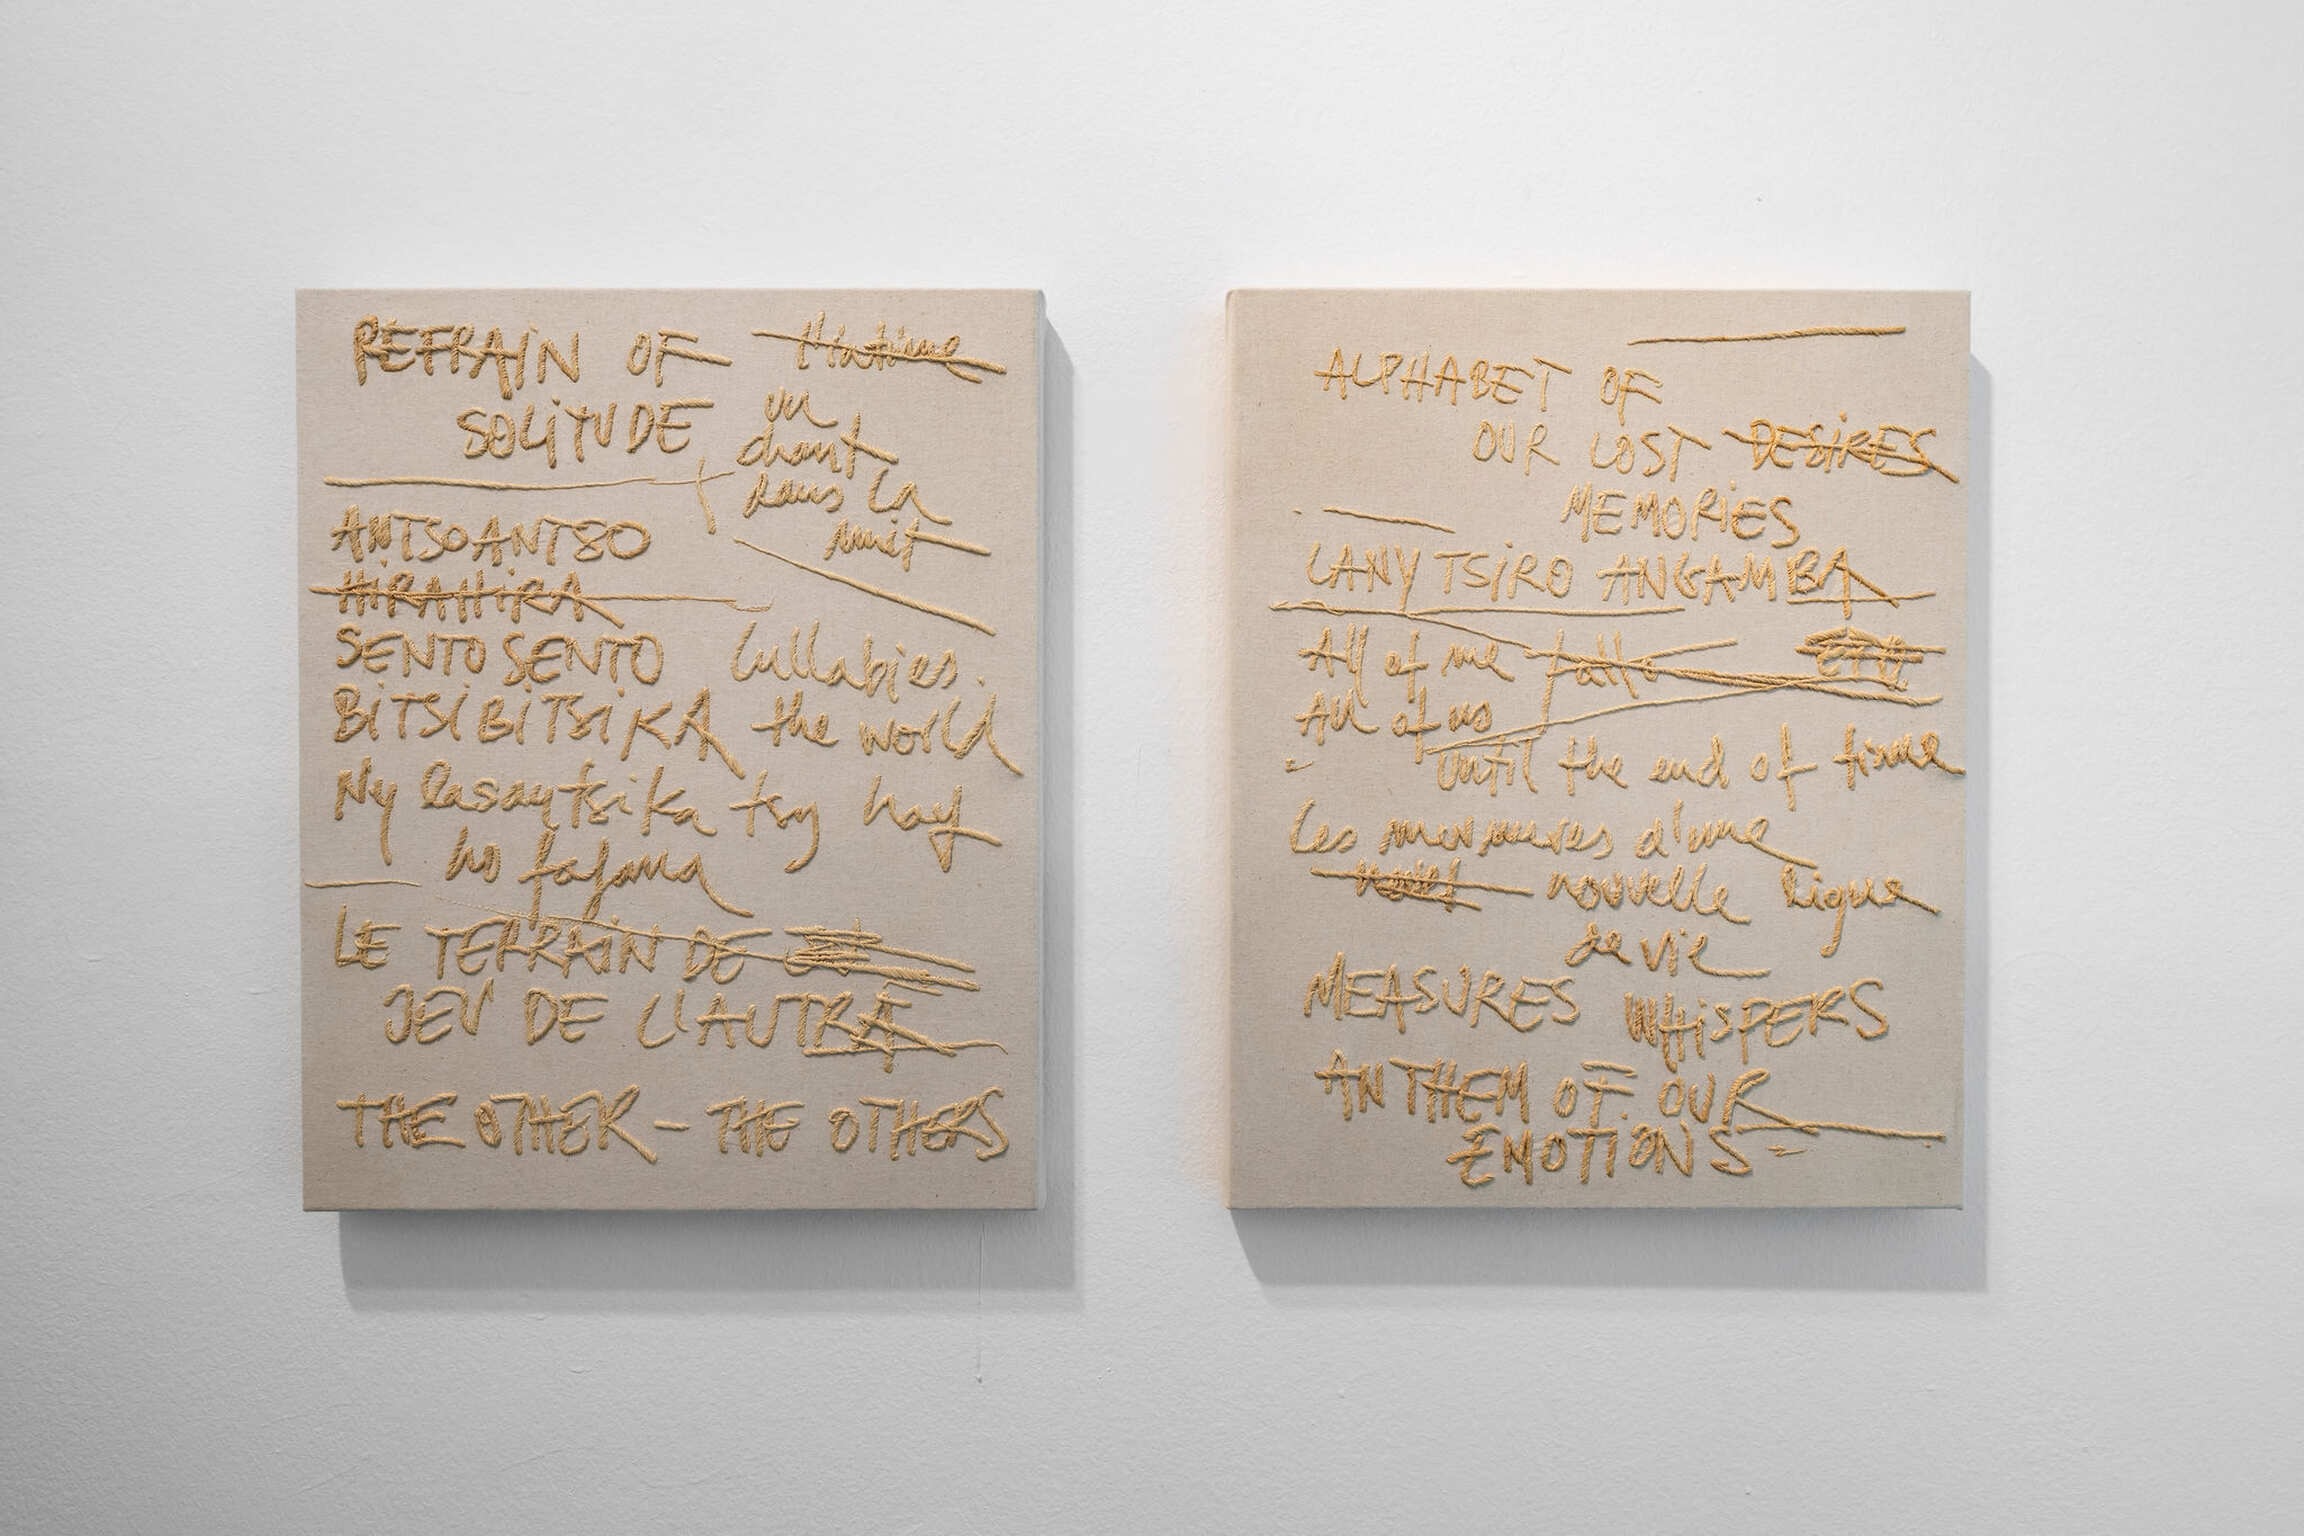 REFRAIN OF
SOLITUDE
un
chant
dans la
nuit
ANTSOANTSO
HIRAHIRA
SENTO SENTO
BITSIBITSIKA
lullabies.
the world
Ny lasantsika tsy hay
ho fafana
LE TERRAIN DE
JEU DE L'AUTRA
THE OTHER - THE OTHERS
ALPHABET OF
OUR LOST DESIRES
MEMORIES
LANY TSIRO ANGAMBA
All of me
All of us
until the end of time
les murmures d'une
nouvelle ligne
de vie
MEASURES WHISPERS
ANTHEM OF OUR
EMOTIONS